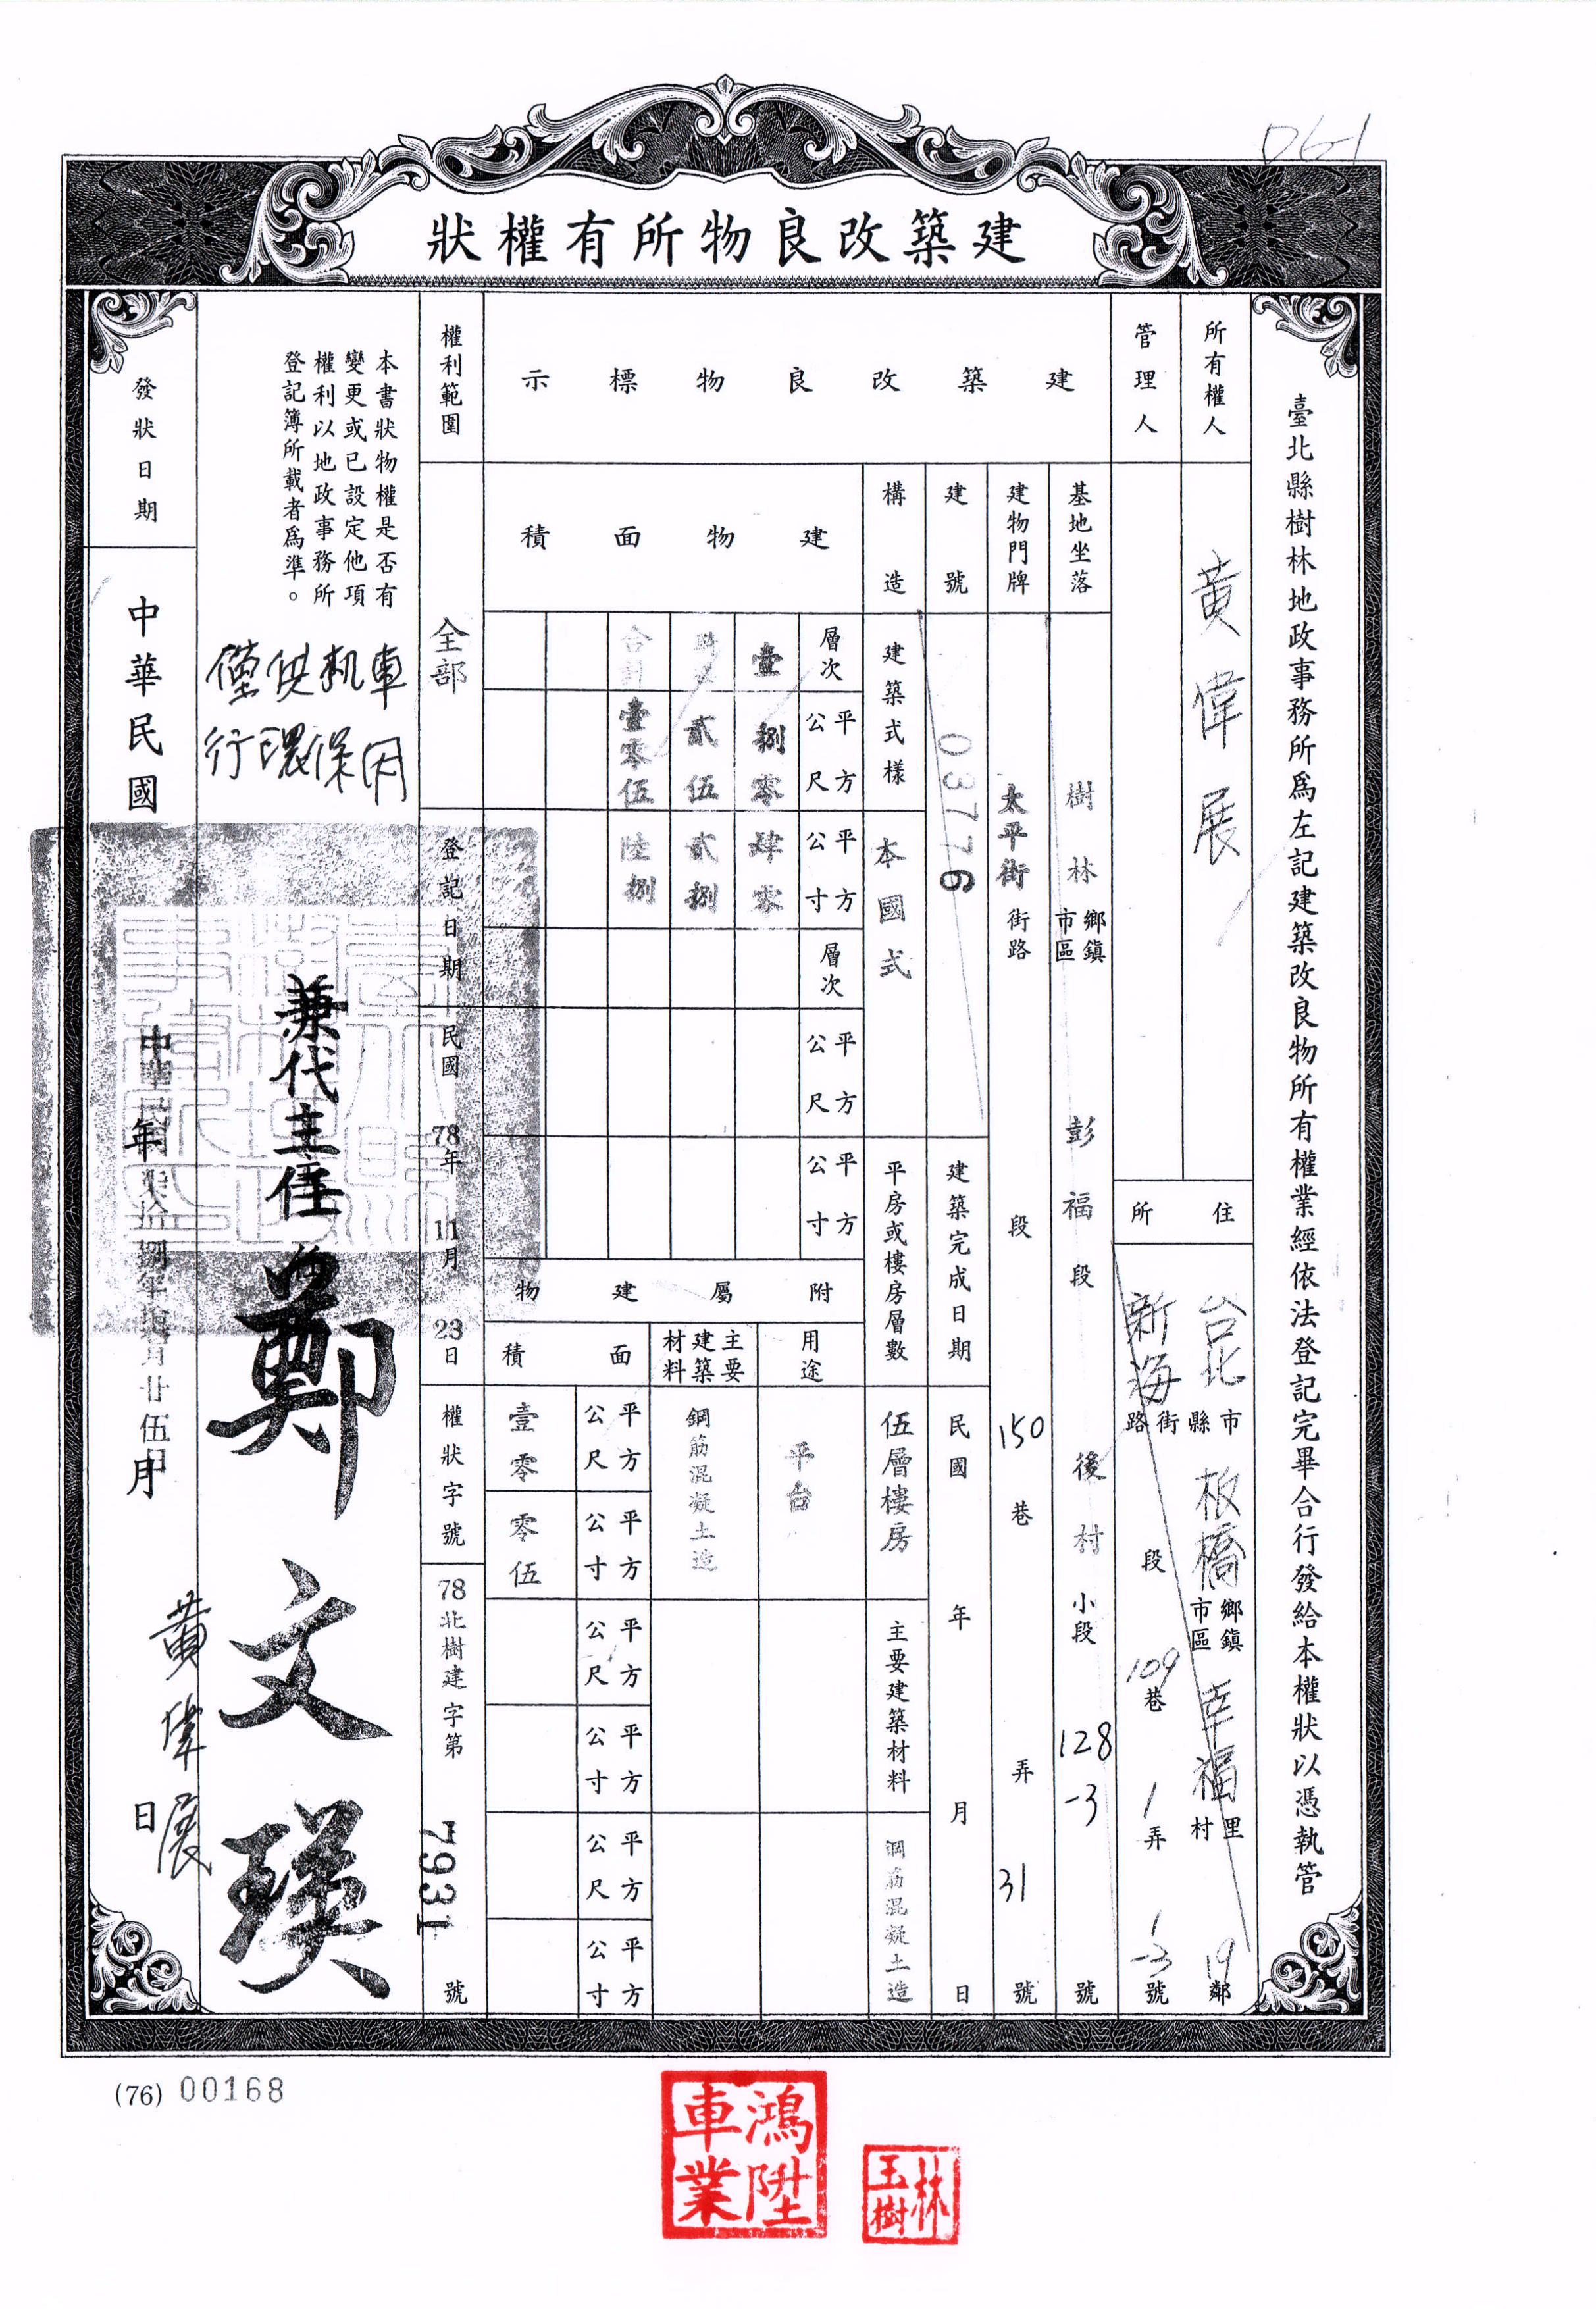 D6-1
建築改良物所有權狀
臺北縣樹林地政事務所爲左記建築改良物所有權業經依法登記完畢合行發給本權狀以憑執管
所有權人
黃偉展
管理人
住所
台北市縣板橋鄉鎮市區幸福里村19鄰
新海街路段109巷1弄1-3號
建築改良物標示
基地坐落
樹林鄉鎮市區彭福段後村小段128-3號
建物門牌
太平街街路段150巷弄31號
建號
03776
建築完成日期
民國年月日
構造
建築式樣
本國式
平房或樓房層數
伍層樓房
主要建築材料
鋼筋混凝土造
建物面積
層次
平方公尺
平方公寸
層次
平方公尺
平方公寸
壹
捌零
肆零
貳伍
貳捌
合計
壹零伍
陸捌
附屬建物
用途
平台
主要建築材料
鋼筋混凝土造
面積
平方公尺
平方公寸
平方公尺
平方公寸
平方公尺
平方公寸
壹零
零伍
權利範圍
全部
登記日期
民國78年11月23日
權狀字號
78北樹建字第7931號
本書狀物權是否有
變更或已設定他項
權利以地政事務所
登記簿所載者爲準。
僅供机車
行環保用
兼代主任鄭文瑛
發狀日期
中華民國年月日
中華民國柒拾捌年拾壹月廿伍日
黃偉展
(76) 00168
鴻陞
車業
林
玉樹